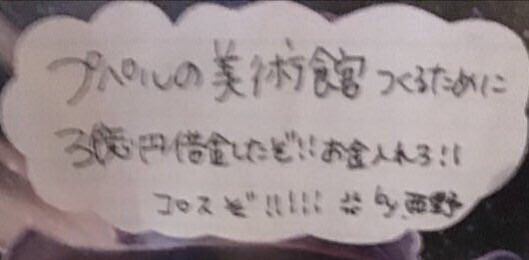 プペルの美術館つくるために
3億円借金したぞ!!お金入れろ!!
コロスぞ!!!!! by 西野